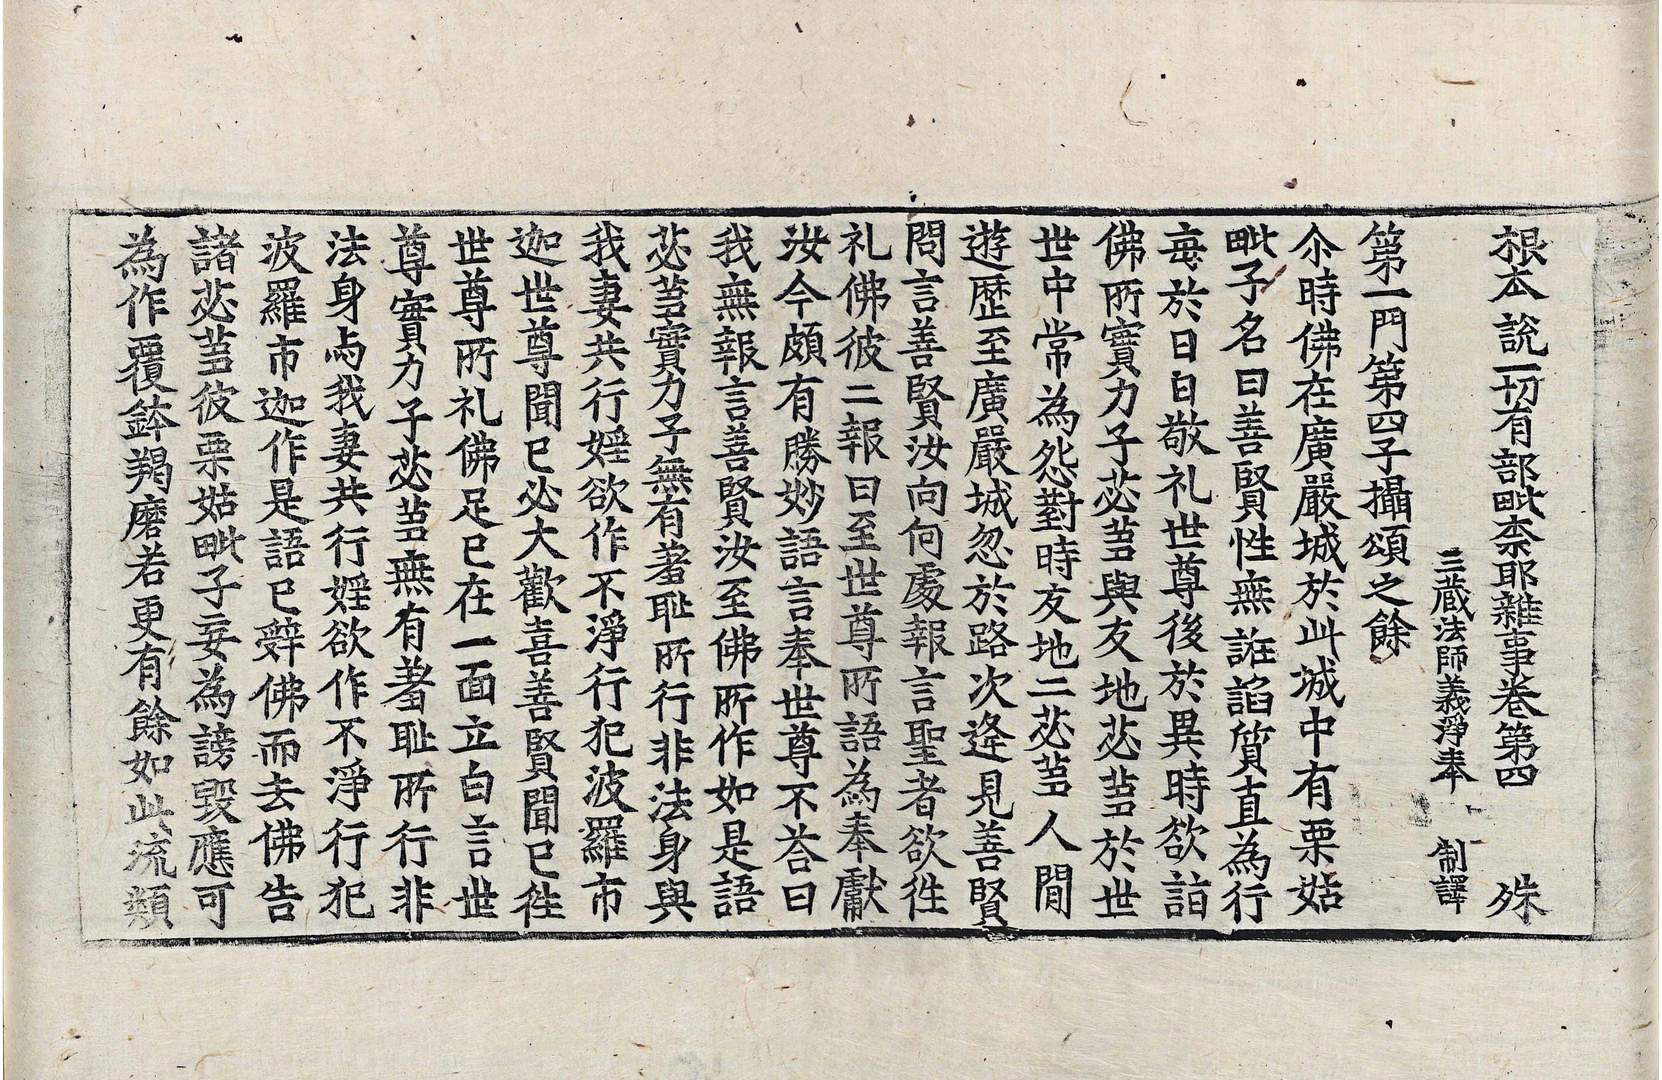 根本說一切有部毗柰耶雜事卷第四 殊
三藏法師義淨奉 制譯
第一門第四子攝頌之餘
尒時佛在廣嚴城於此城中有栗姑
毗子名曰善賢性無誑諂質直為行
每於日日敬礼世尊後於異時欲詣
佛所實力子苾蒭與友地苾蒭於世
世中常為怨對時友地二苾蒭人間
遊歷至廣嚴城忽於路次逢見善賢
問言善賢汝向何處報言聖者欲徃
礼佛彼二報曰至世尊所語為奉獻
汝今頗有勝妙語言奉世尊不荅曰
我無報言善賢汝至佛所作如是語
苾蒭實力子無有羞耻所行非法身與
我妻共行婬欲作不淨行犯波羅市
迦世尊聞已必大歡喜善賢聞已徃
世尊所礼佛足已在一面立白言世
尊實力子苾蒭無有羞耻所行非
法身与我妻共行婬欲作不淨行犯
波羅市迦作是語已辝佛而去佛告
諸苾蒭彼栗姑毗子妄為謗毀應可
為作覆鉢羯磨若更有餘如此流類